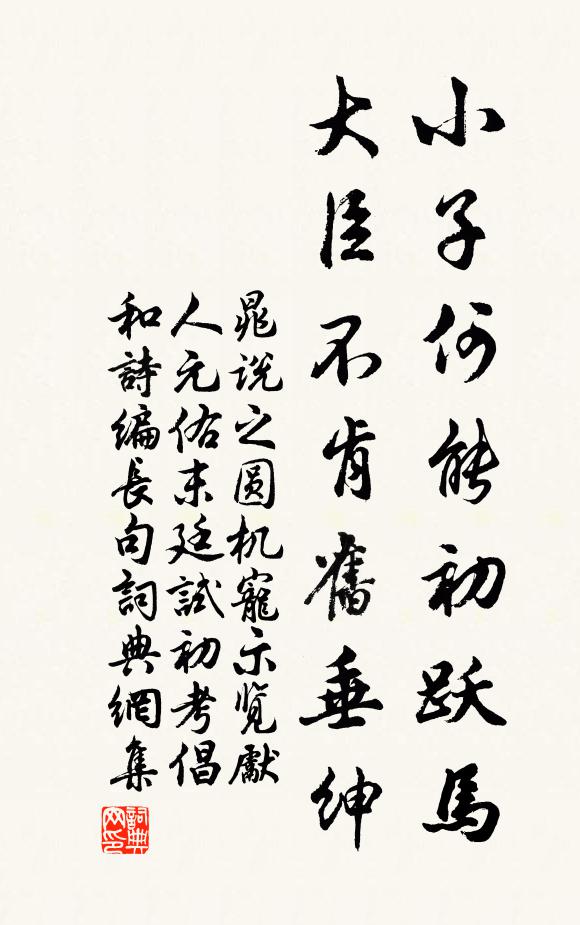 小子何能初跃馬
大臣不肯奮垂紳
晁説之圆机寵示覽獻
人元佑末廷試初考倡
和詩編長句詞典網集
詞典网印